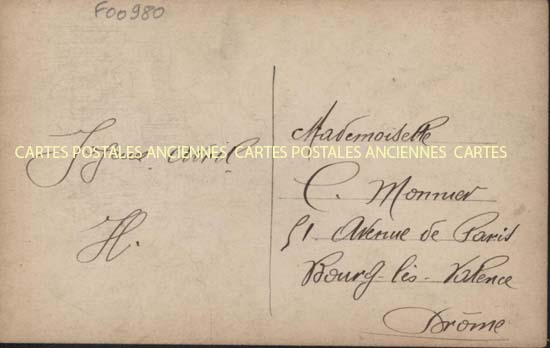 F00980
CARTES POSTALES ANCIENNES CARTES POSTALES ANCIENNES CARTES
avril
H.
Mademoiselle
C. Monnier
51 Avenue de Paris
Bourg-lès-Valence
Drôme